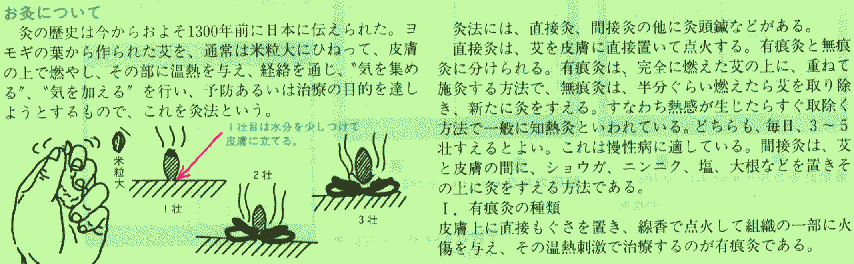 お灸について
灸の歴史は今からおよそ1300年前に日本に伝えられた。ヨ
モギの葉から作られた艾を、通常は米粒大にひねって、皮膚
の上で燃やし、その部に温熱を与え、経絡を通じ、〝気を集め
る〟、〝気を加える〟を行い、予防あるいは治療の目的を達し
ようとするもので、これを灸法という。
1壮目は水分を少しつけて
皮膚に立てる。
米粒大
1壮
2壮
3壮
灸法には、直接灸、間接灸の他に灸頭鍼などがある。
直接灸は、艾を皮膚に直接置いて点火する。有痕灸と無痕
灸に分けられる。有痕灸は、完全に燃えた艾の上に、重ねて
施灸する方法で、無痕灸は、半分ぐらい燃えたら艾を取り除
き、新たに灸をすえる。すなわち熱感が生じたらすぐ取除く
方法で一般に知熱灸といわれている。どちらも、毎日、3～5
壮すえるとよい。これは慢性病に適している。間接灸は、艾
と皮膚の間に、ショウガ、ニンニク、塩、大根などを置きそ
の上に灸をすえる方法である。
Ⅰ．有痕灸の種類
皮膚上に直接もぐさを置き、線香で点火して組織の一部に火
傷を与え、その温熱刺激で治療するのが有痕灸である。